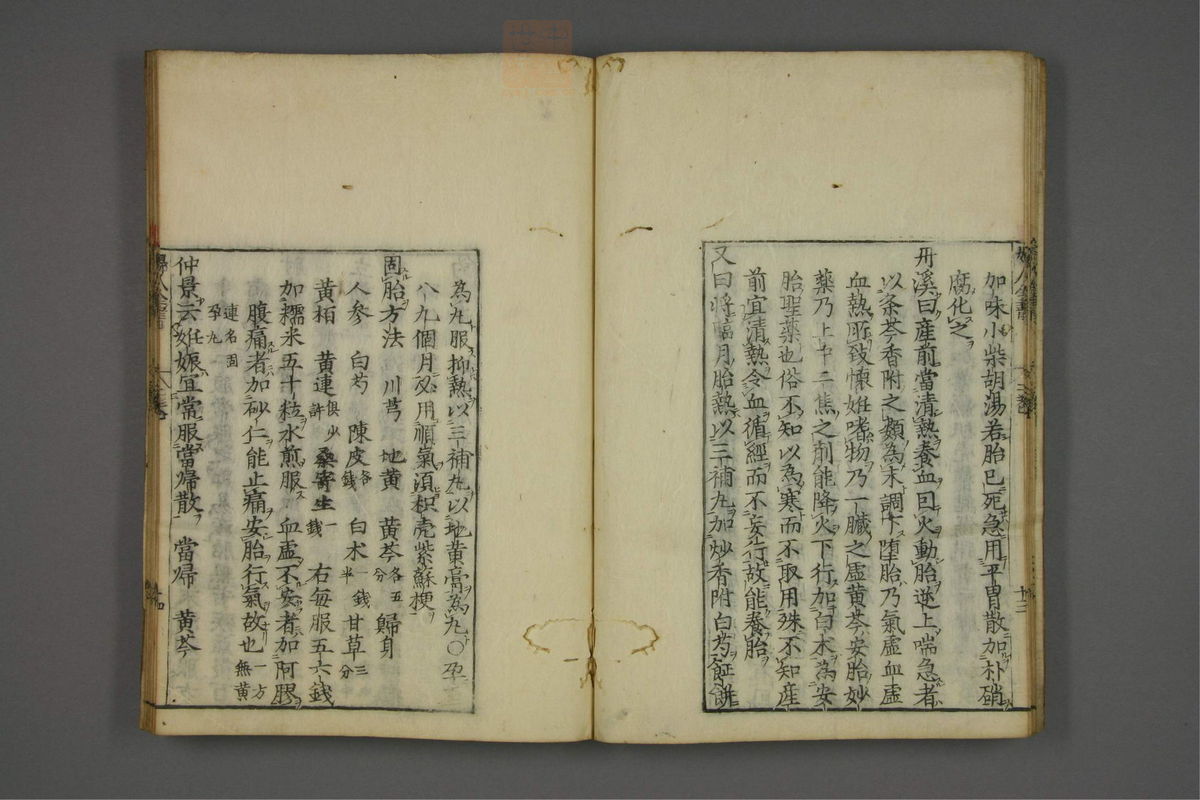 加味小柴胡湯若胎已死急用平胃散加朴硝
腐化之
丹溪曰産前當清熱養血曰火動胎逆上喘急者
以条芩香附之類為末調下堕胎乃氣虚血虚
血熱所致懐姙嗜物乃一臓之虚黄芩安胎妙
薬乃上中二焦之剤能降火下行加白朮為安
胎聖薬也俗不知以為寒而不取用殊不知産
前宜清熱令血循經而不妄行故能養胎
又曰将臨月胎熱以三補丸加炒香附白芍䭔餅
為丸服抑熱以三補丸以地黄膏為丸〇孕
八九個月必用順氣須枳壳紫蘇梗
固胎方法 川芎 地黄 黄芩各五分 歸身
人参 白芍 陳皮各一錢 白朮一錢半 甘草三分
黄栢 黄連俱少許 桑寄生一錢 右毎服五六錢
加糯米五十粒水煎服 血虚不安者加阿膠
腹痛者加砂仁能止痛安胎行氣故也一方無黄
連名固孕丸
仲景云姙娠宜常服當帰散 當帰 黄芩